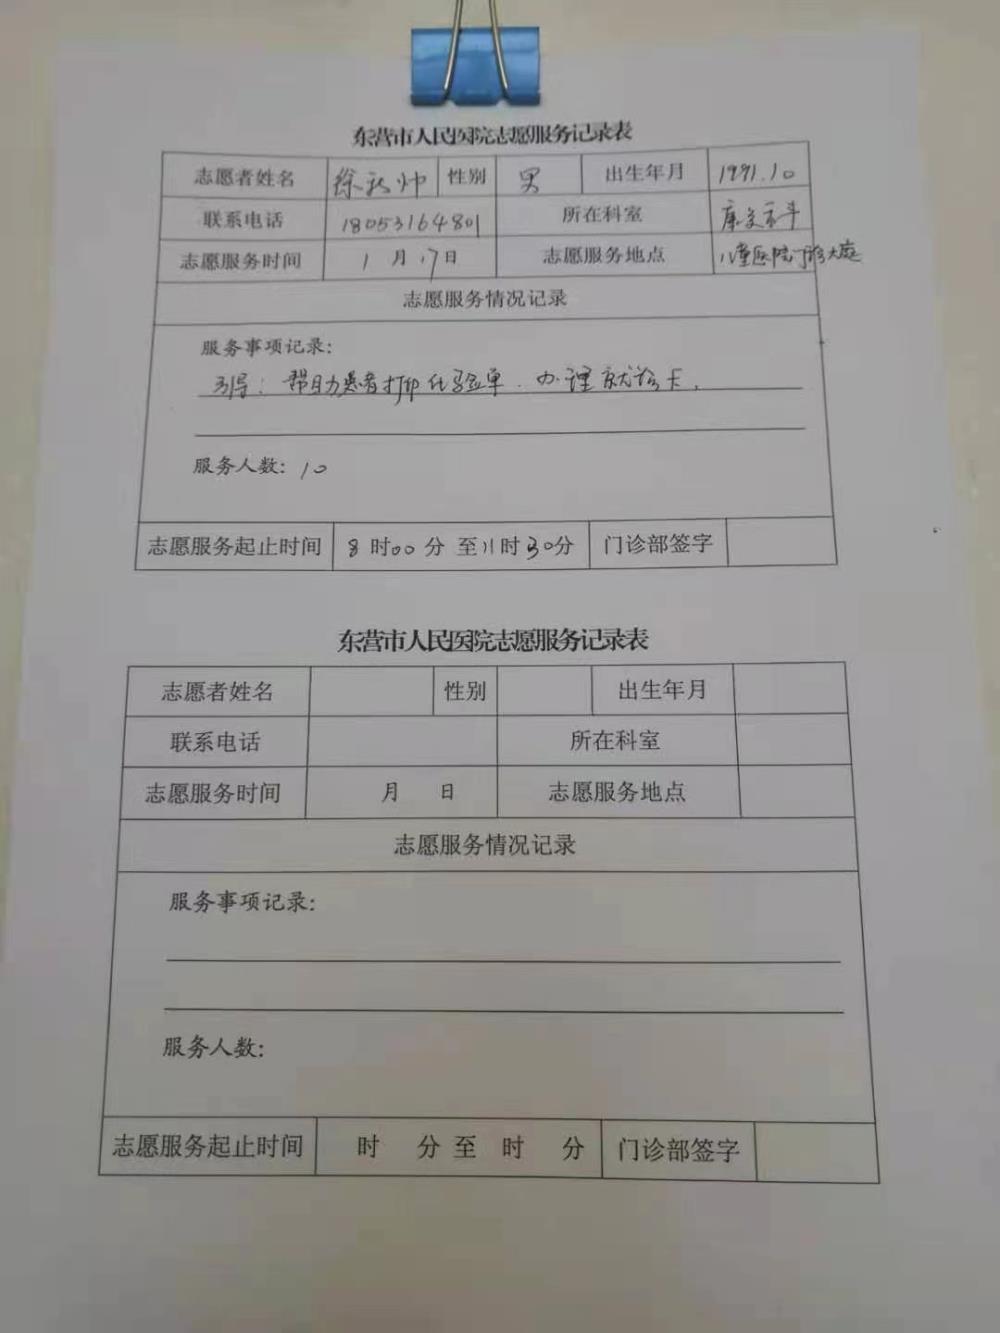 东营市人民医院志愿服务记录表
志愿者姓名 徐 帅 性别 男 出生年月 1991.10
联系电话 18053164801 所在科室 康复科
志愿服务时间 1月17日 志愿服务地点 儿童医院门诊大庭
志愿服务情况记录
服务事项记录:
引导: 帮助患者打印化验单. 办理就诊卡.
服务人数: 10
志愿服务起止时间 8时00分至11时30分 门诊部签字
东营市人民医院志愿服务记录表
志愿者姓名 性别 出生年月
联系电话 所在科室
志愿服务时间 月 日 志愿服务地点
志愿服务情况记录
服务事项记录:
服务人数:
志愿服务起止时间 时 分至 时 分 门诊部签字